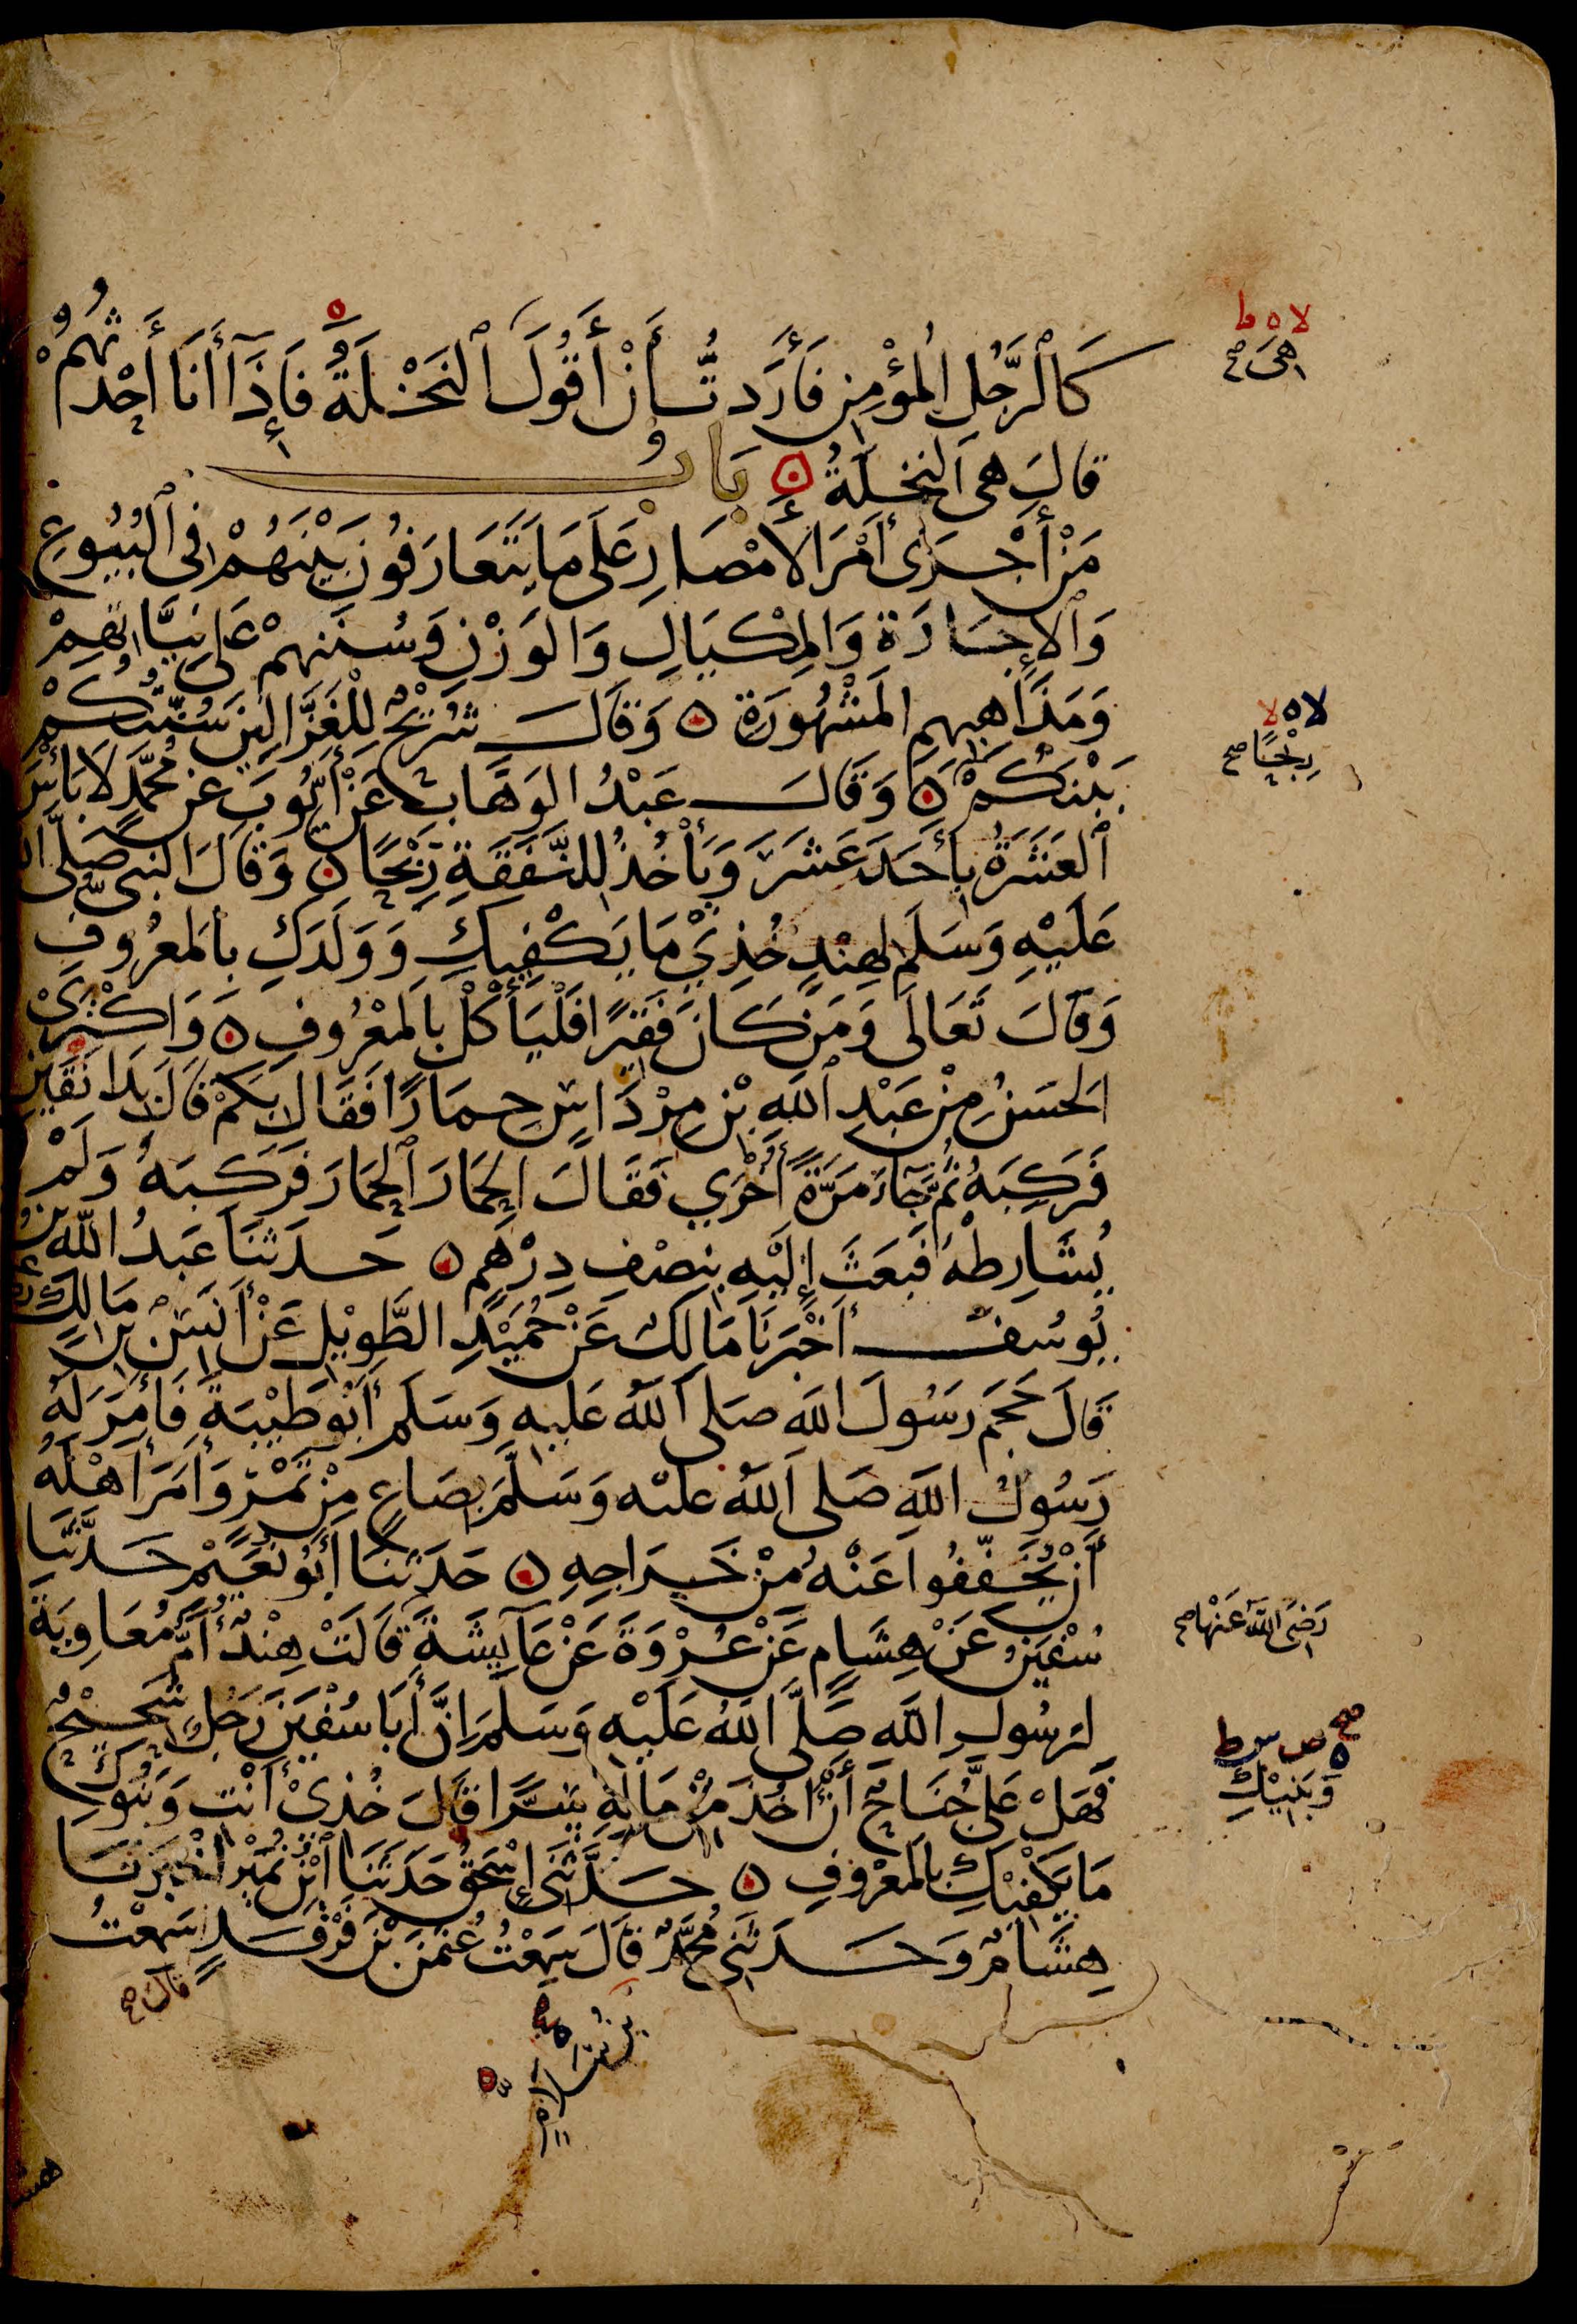 كَالرَّجُلِ الْمُؤْمِنِ فَأَرَدتُّ أَنْ أَقُولَ النَّخْلَةُ فَإِذَا أَنَا أَحْدَثُهُمْ
قَالَ هِيَ النَّخْلَةُ بَابُ
مَنْ أَجْرَى أَمْرَ الأَمْصَارِ عَلَى مَا يَتَعَارَفُونَ بَيْنَهُمْ فِي الْبُيُوعِ
وَالإِجَارَةِ وَالْمِكْيَالِ وَالْوَزْنِ وَسُنَنِهِمْ عَلَى نِيَّاتِهِمْ
وَمَذَاهِبِهِمِ الْمَشْهُورَةِ ه وَقَالَ شُرَيْحٌ لِلْغَزَّالِينَ سُنَّتُكُمْ
بَيْنَكُمْ ه وَقَالَ عَبْدُ الْوَهَّابِ عَنْ أَيُّوبَ عَنْ مُحَمَّدٍ لَا بَأْسَ
الْعَشَرَةُ بِأَحَدَ عَشَرَ وَيَأْخُذُ لِلنَّفَقَةِ رِبْحًا ه وَقَالَ النَّبِيُّ صَلَّى
عَلَيْهِ وَسَلَّمَ لِهِنْدٍ خُذِي مَا يَكْفِيكِ وَوَلَدَكِ بِالْمَعْرُوفِ
وَقَالَ تَعَالَى وَمَنْ كَانَ فَقِيرًا فَلْيَأْكُلْ بِالْمَعْرُوفِ ه وَاكْتَرَى
الْحَسَنُ مِنْ عَبْدِ اللهِ بْنِ مِرْدَاسٍ حِمَارًا فَقَالَ بِكَمْ قَالَ بِدَانَقَيْنِ
فَرَكِبَهُ ثُمَّ جَاءَ مَرَّةً أُخْرَى فَقَالَ الْحِمَارَ الْحِمَارَ فَرَكِبَهُ وَلَمْ
يُشَارِطْهُ فَبَعَثَ إِلَيْهِ بِنِصْفِ دِرْهَمٍ ه حَدَّثَنَا عَبْدُ اللهِ بْنُ
يُوسُفَ أَخْبَرَنَا مَالِكٌ عَنْ حُمَيْدٍ الطَّوِيلِ عَنْ أَنَسِ بْنِ مَالِكٍ
قَالَ حَجَمَ رَسُولَ اللهِ صَلَّى اللهُ عَلَيْهِ وَسَلَّمَ أَبُو طَيْبَةَ فَأَمَرَ لَهُ
رَسُولُ اللهِ صَلَّى اللهُ عَلَيْهِ وَسَلَّمَ بِصَاعٍ مِنْ تَمْرٍ وَأَمَرَ أَهْلَهُ
أَنْ يُخَفِّفُوا عَنْهُ مِنْ خَرَاجِهِ ه حَدَّثَنَا أَبُو نُعَيْمٍ حَدَّثَنَا
سُفْيَنُ عَنْ هِشَامٍ عَنْ عُرْوَةَ عَنْ عَائِشَةَ قَالَتْ هِنْدٌ أُمُّ مُعَاوِيَةَ
لِرَسُولِ اللهِ صَلَّى اللهُ عَلَيْهِ وَسَلَّمَ إِنَّ أَبَا سُفْيَنَ رَجُلٌ شَحِيحٌ
فَهَلْ عَلَيَّ جُنَاحٌ أَنْ آخُذَ مِنْ مَالِهِ سِرًّا قَالَ خُذِي أَنْتِ وَبَنُوكِ
مَا يَكْفِيكِ بِالْمَعْرُوفِ ه حَدَّثَنِي إِسْحَقُ حَدَّثَنَا ابْنُ نُمَيْرٍ أَخْبَرَنَا
هِشَامٌ وَحَدَّثَنِي مُحَمَّدٌ قَالَ سَمِعْتُ عُثْمَنَ بْنَ فَرْقَدٍ سَمِعْتُ
قَالَ صح
بْنُ سَلَامٍ
لا ه ط
هِيَ صح
لا ه لا
رِبْحًا صح
رَضِيَ اللهُ عَنْهَا صح
صح ه ص س ط
وَبَنِيكِ